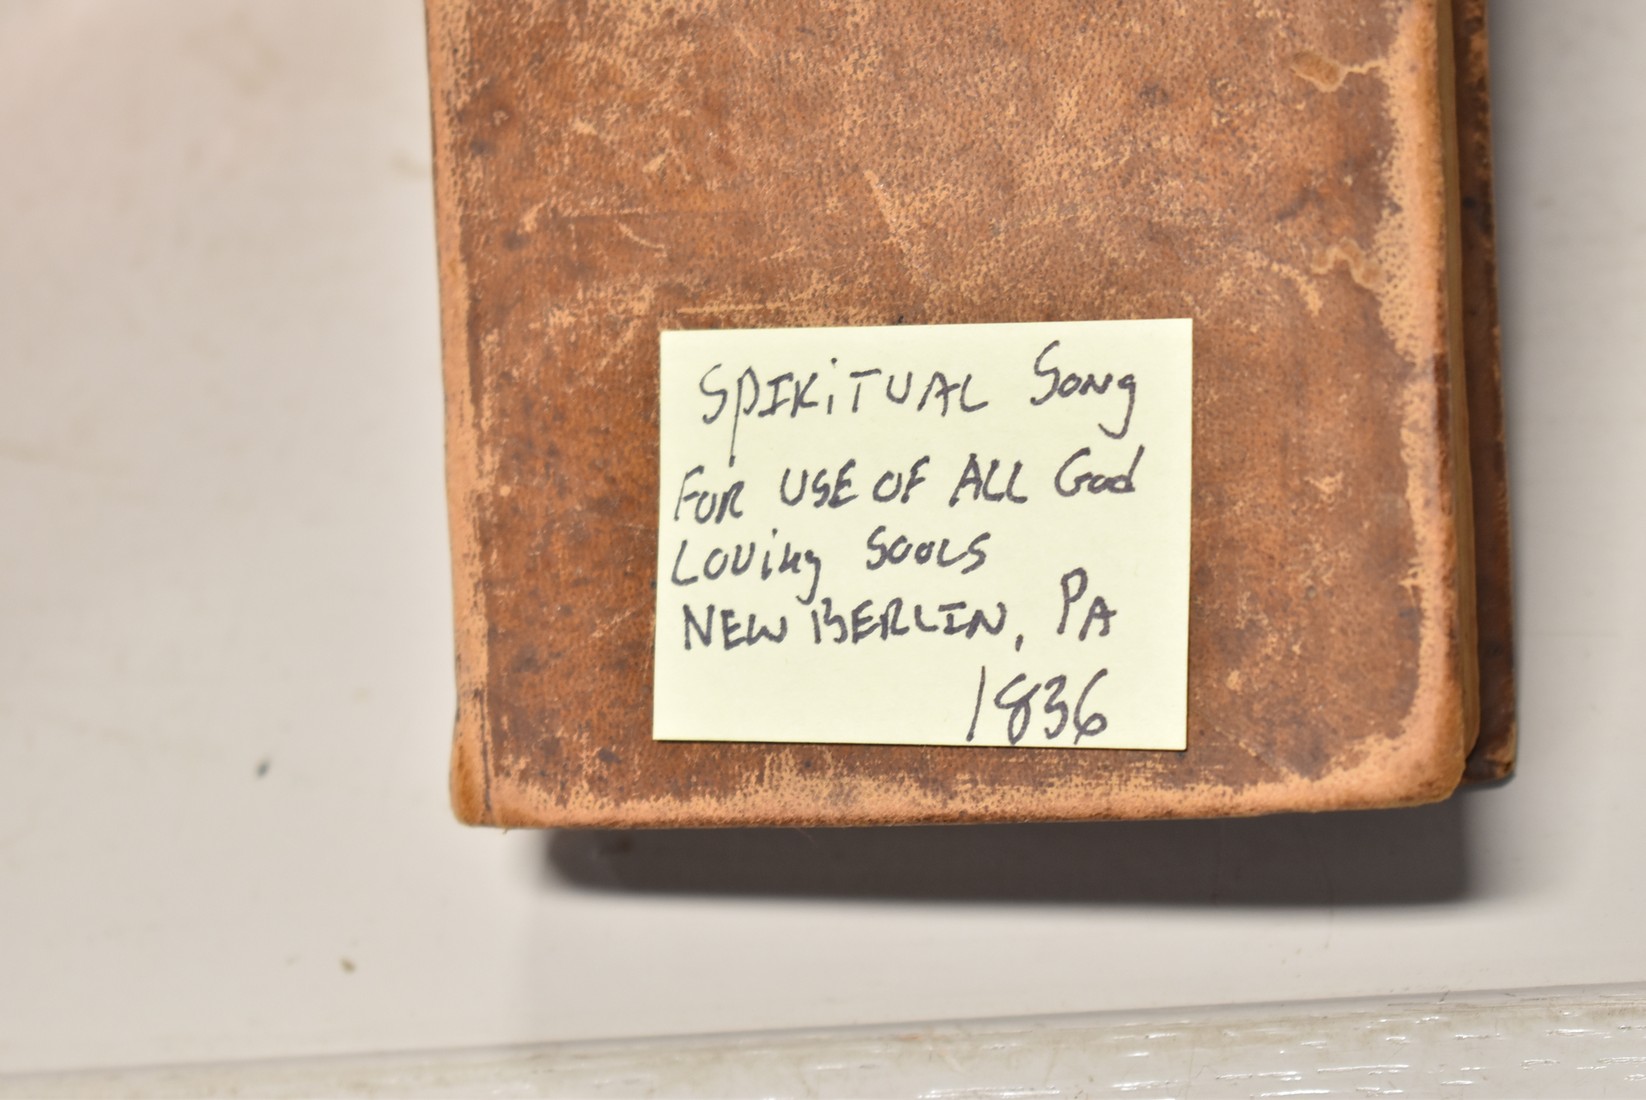 SPIRITUAL Song
FOR USE OF ALL God
Loving Souls
NEW BERLIN, PA
1836